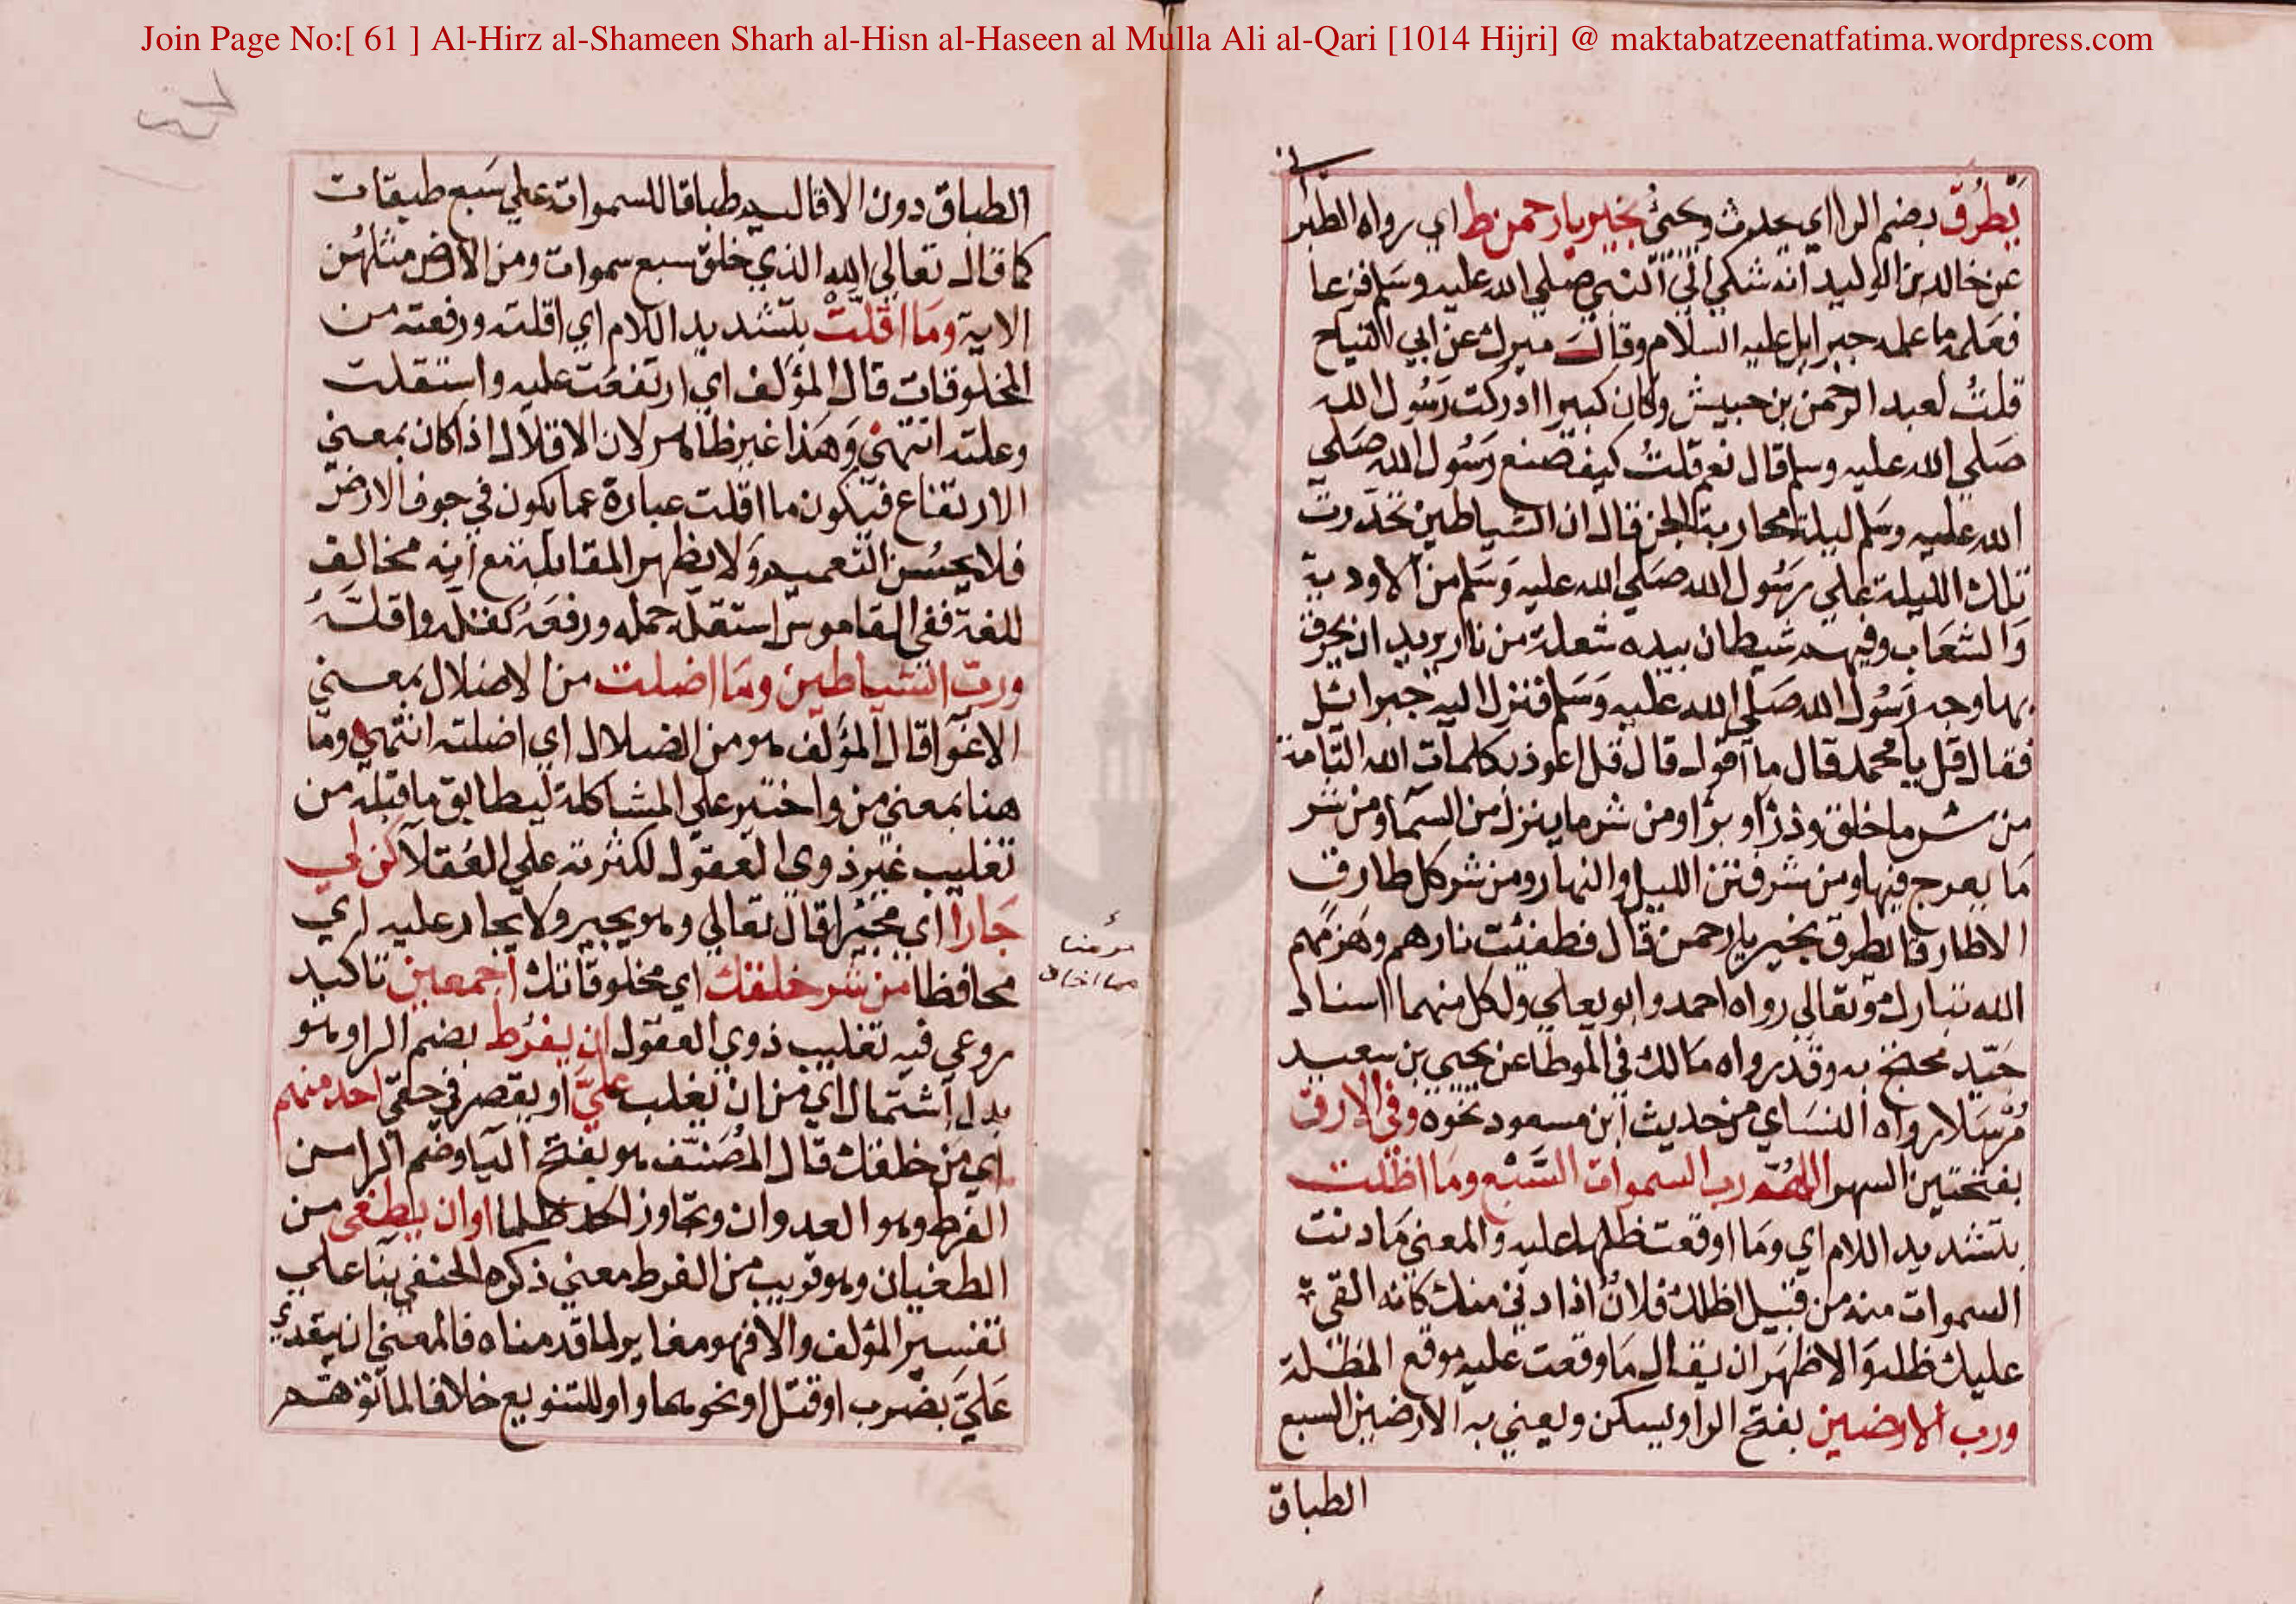 Join Page No:[ 61 ] Al-Hirz al-Shameen Sharh al-Hisn al-Haseen al Mulla Ali al-Qari [1014 Hijri] @ maktabatzeenatfatima.wordpress.com
يَطرُق بضم الراي اي يحدث ويجئ بخير يا رحمن ط اي رواه الطبرا
ني
عن خالد بن الوليد انه شكي الي النبي صلي الله عليه وسلم فزعا
فعلمه ما علمه جبرايل عليه السلام وقال ميرك عن ابي التياح
قلتُ لعبد الرحمن بن حبيش وكان كبيرا ادركت رسُول الله
صَلي الله عليه وسلم قال نعم قلتُ كيف صنع رسُول الله صَلي
الله عليه وسَلم ليلة محاربة الجن قال ان الشياطين تحدّرت
تلك الليلة علي رسُول الله صَلي الله عليه وَسَلم من الاودية
وَالشعَاب وفيهم شيطان بيده شعلة من نار يريد ان يحرق
بها وجه رَسُول الله صَلي الله عليه وَسَلم فنزل اليه جبرائيل
فقال قل يا محمد قال ما اقول قال قل اعوذ بكلمات الله التّامة
من شر ما خلق وذرأ وبرأ ومن شر ما ينزل من السّما ومن شر
مَا يعرج فيها ومن شر فتن الليل والنهار ومن شر كل طارق
الاطارقا يطرق بخير يا رحمن قال فطفئت نارهم وهَزمهم
الله تبارك وتعالي رواه احمد وابو يعلي ولكل منهما اسناد
جَيّد محتج به وقد رواه مالك في الموطا عن يحيي بن سعيد
مُرْسَلا رواه النسَاي من حديث ابن مسعود نحوه وفي الارق
بفتحتين السهر اللهُمّ رب السموات السّبْع ومَا اظلت
بتشديد اللام اي ومَا اوقعت ظلها عليه والمعني مَا دنت
السموات منه من قبيل اظلك فلانٌ اذا دني منك كانه القي
عليك ظله وَالاظهَر ان يقال مَا وقعت عليه موقع المظلة
ورب الارضين بفتح الرا ويسكن ويعني به الارضين السبع
الطباق
الطباق دون الاقاليم طباقا للسموات علي سَبع طبقات
كما قال تعالي الله الذي خلق سبع سموات ومن الارض مثلهُن
الاية ومَا اقلّتْ بتشديد اللام اي اقلته ورفعته من
المخلوقات قال المؤلف اي ارتفعَت عليه واستقلت
وعلته انتهيٰ وَهَذا غير ظاهر لان الاقلال اذا كان بمعني
الارتفاع فيكون ما اقلت عبارة عما يكون في جوف الارض
فلا يحسُن التعميم وَلا يظهر المقابلة مع انه مخالف
للغة ففي القاموس استقله حمله ورفعَهُ كقله واقلَّهُ
ورب الشياطين ومَا اضلت من الاضلال بمعني
الاغوا قال المؤلف هو من الضلال اي اضلته انتهي وما
هنا بمعني من واختير علي المشاكلة ليطابق ما قبله من
تغليب غير ذوي العقول لكثرته علي العُقلا كن لي
جَارا اي مجيرا قال تعالي وهو يجير ولا يجار عليه اي
محافظا من شر خلقك اي مخلوقاتك اجمعين تاكيد
روعي فيه تغليب ذوي العقول ان يفرُط بضم الرا وهو
بدل اشتمال اي من ان يغلب عليّ او يقصر في حقي احد منهم
اي من خلقك قال المُصَنّف هو بفتح اليا وضم الرا من
الفرط وهو العدوان وتجاوز الحد ظلما او ان يطغى من
الطغيان وهو قريب من الفرط معني ذكره الحنفي بنا علي
تفسير المؤلف والا فهو مغاير لما قدمناه فالمعني ان يتعدي
عَليَّ بضرب او قتل او نحوهما واو للتنويع خلافا لما توهم